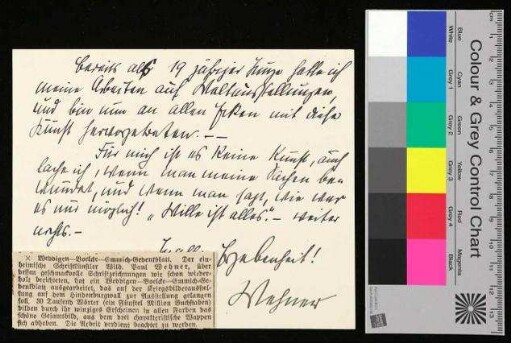 bereits als 19 jähriger Junge hatte ich
meine Arbeiten auf Weltausstellungen,
und bin nun an allen Ecken mit diese
Kunst hervorgetreten. —
Für mich ist es keine Kunst, auch
lache ich, wenn man meine Sachen be-
wundert, und wenn man sagt, wie war
es nur möglich! „Wille ist alles". — weiter
nichts. —
Ergebenheit!
Wehner
× Weddigen—Boelcke—Emmich-Gedenkblatt. Der ein-
heimische Schriftkünstler Wilh. Paul Wehner, über
dessen geschmackvolle Schriftzeichnungen wir schon wieder-
holt berichteten, hat ein Weddigen—Boelcke—Emmich-Ge-
denkblatt ausgearbeitet, das auf der Kriegsbilderausstel-
lung auf dem Hindenburgwall zur Ausstellung gelangen
soll. 10 Tausend Wörter (ein Fünftel Million Buchstaben)
bilden durch ihr winziges Erscheinen in allen Farben das
schöne Gesamtbild, aus dem drei charakteristische Wappen
sich abheben. Die Arbeit verdient beachtet zu werden.
Colour & Grey Control Chart
Blue
Cyan
Green
Yellow
Red
Magenta
White
Gray 1
Gray 2
Gray 3
Gray 4
Black